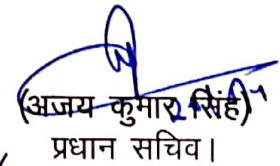 (अजय कुमार सिंह)
प्रधान सचिव।